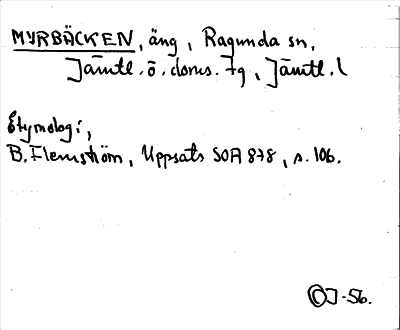 MYRBÄCKEN, äng, Ragunda sn,
Jämtl. ö. doms. tg, Jämtl. l
Etymologi,
B. Flemström, Uppsats SOA 878, s. 106.
OJ-56.